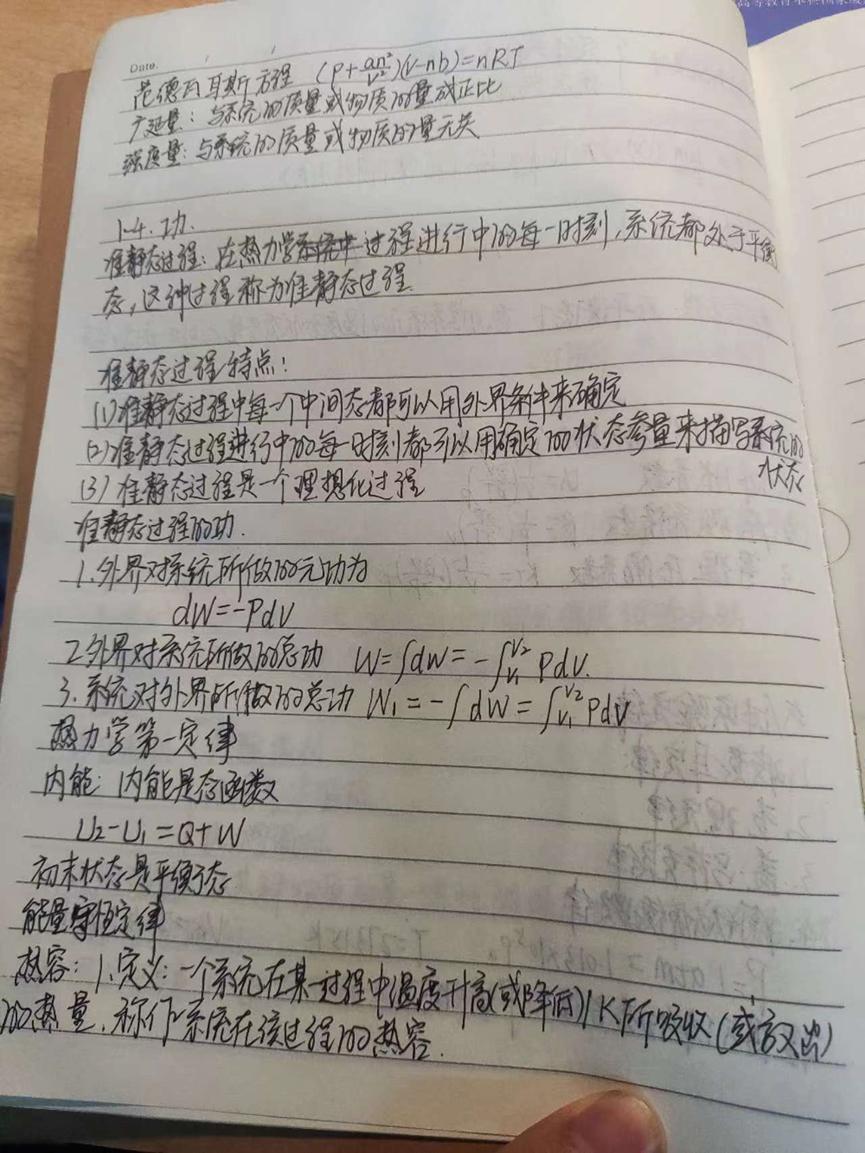 Date.
范德瓦耳斯方程 (P+an²/V²)(V-nb)=nRT
广延量：与系统的质量或物质的量成正比
强度量：与系统的质量或物质的量无关
1-4.功.
准静态过程：在热力学系统中过程进行中的每一时刻，系统都处于平衡
态，这种过程称为准静态过程.
准静态过程特点：
(1)准静态过程中每一个中间态都可以用外界条件来确定
(2)准静态过程进行中的每一时刻都可以用确定的状态参量来描写系统的
状态
(3)准静态过程是一个理想化过程
准静态过程的功.
1.外界对系统所做的元功为
dW=-PdV
2.外界对系统所做的总功 W=∫dW=-∫V₁V₂ PdV.
3.系统对外界所做的总功 W₁=-∫dW=∫V₁V₂ PdV
热力学第一定律
内能：内能是态函数
U₂-U₁=Q+W
初末状态是平衡态
能量守恒定律
热容：1.定义：一个系统在某一过程中温度升高(或降低)1K所吸收(或放出)
的热量，称作系统在该过程的热容.